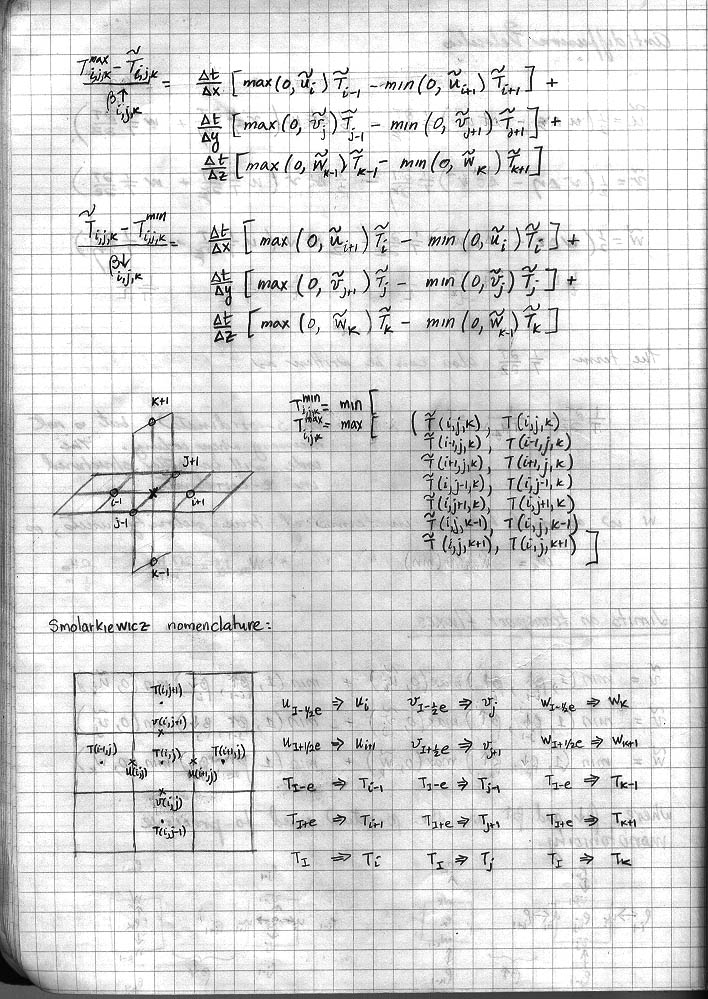 T^max_{i,j,k} - T̃_{i,j,k} / β↑_{i,j,k} = Δt/Δx [max(0, ũ_i) T̃_{i-1} - min(0, ũ_{i+1}) T̃_{i+1}] +
Δt/Δy [max(0, ṽ_j) T̃_{j-1} - min(0, ṽ_{j+1}) T̃_{j+1}] +
Δt/Δz [max(0, w̃_{k-1}) T̃_{k-1} - min(0, w̃_k) T̃_{k+1}]
T̃_{i,j,k} - T^min_{i,j,k} / β↓_{i,j,k} = Δt/Δx [max(0, ũ_{i+1}) T̃_i - min(0, ũ_i) T̃_i] +
Δt/Δy [max(0, ṽ_{j+1}) T̃_j - min(0, ṽ_j) T̃_j] +
Δt/Δz [max(0, w̃_k) T̃_k - min(0, w̃_{k-1}) T̃_k]
T^min_{i,j,k} = min [
T^max_{i,j,k} = max
(T̃(i,j,k), T(i,j,k)
T̃(i-1,j,k), T(i-1,j,k)
T̃(i+1,j,k), T(i+1,j,k)
T̃(i,j-1,k), T(i,j-1,k)
T̃(i,j+1,k), T(i,j+1,k)
T̃(i,j,k-1), T(i,j,k-1)
T̃(i,j,k+1), T(i,j,k+1) ]
k+1
j+1
i-1
i+1
j-1
k-1
Smolarkiewicz nomenclature:
T(i,j+1)
v(i,j+1)
T(i-1,j) T(i,j) T(i+1,j)
u(i,j) u(i+1,j)
v(i,j)
T(i,j-1)
u_{I-1/2e} ⇒ u_i v_{I-1/2e} ⇒ v_j w_{I-1/2e} ⇒ w_k
u_{I+1/2e} ⇒ u_{i+1} v_{I+1/2e} ⇒ v_{j+1} w_{I+1/2e} ⇒ w_{k+1}
T_{I-e} ⇒ T_{i-1} T_{I-e} ⇒ T_{j-1} T_{I-e} ⇒ T_{k-1}
T_{I+e} ⇒ T_{i+1} T_{I+e} ⇒ T_{j+1} T_{I+e} ⇒ T_{k+1}
T_I ⇒ T_i T_I ⇒ T_j T_I ⇒ T_k